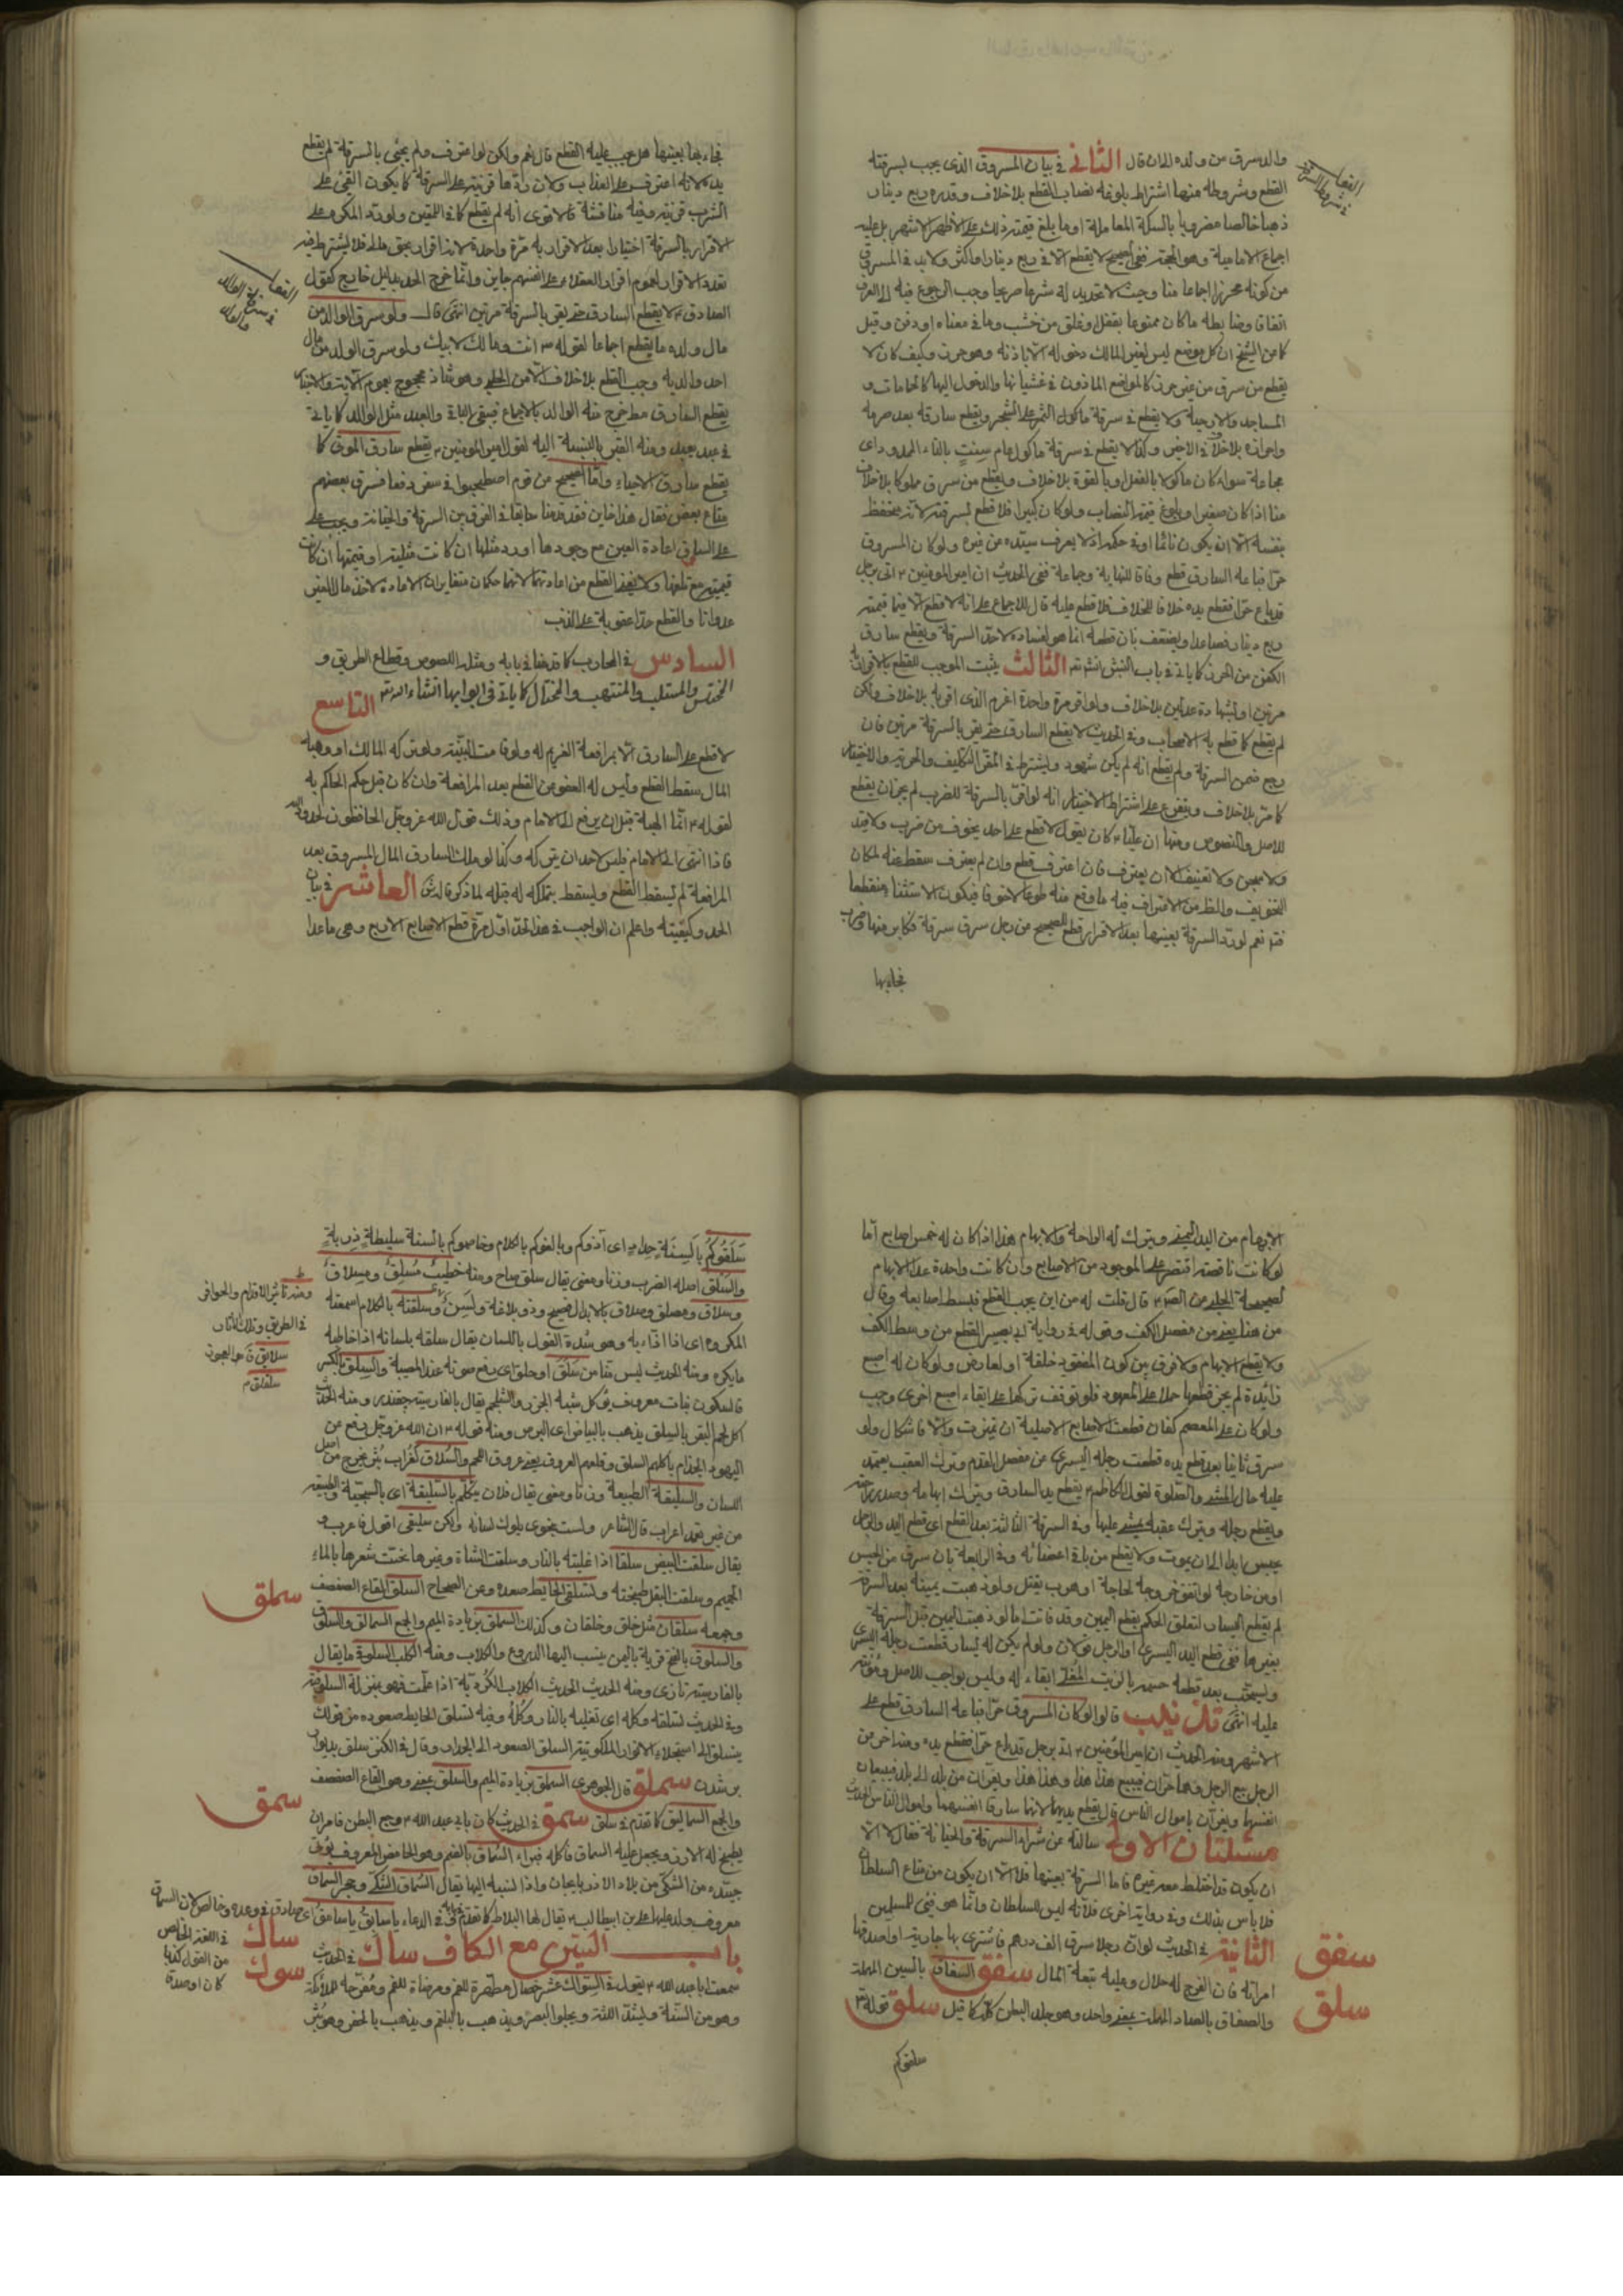 والد سرق من ولده الى ان قال الثاني في بيان المسروق الذي يجب بسرقته
القطع وشروطه منها اشتراط بلوغه نصاب القطع بلا خلاف وقدره ربع دينار
ذهبا خالصا مضروبا بالسكة المعاملة او ما بلغ قيمته ذلك على الاظهر الاشهر بل عليه
اجماع الامامية وهو الحجة ففي الصحيح لا يقطع الا في ربع دينار او اكثر ولا بد في المسروق
من كونه محرزا اجماعا منا وحيث لا تحديد له شرعا صريحا وجب الرجوع فيه الى العرف
اتفاقا وضابطه ما كان ممنوعا بقفل او غلق من خشب وما في معناه او دفن وقيل
كما من الشيخ ان كل موضع ليس لغير المالك دخوله الا باذنه وهو حرز وكيف كان لا
يقطع من سرق من غير حرز كالمواضع الماذون في غشيانها والدخول اليها كالحمامات و
المساجد والارحية ولا يقطع في سرقة ماكول الثمر على الشجر ويقطع سارقه بعد صرمه
واحرازه بلا خلاف في الاخير وكذا لا يقطع في سرقة ماكول عام سنت بالتاء الممدودة اى
مجاعة سواء كان ماكولا بالفعل او بالقوة بلا خلاف ويقطع من سرق مملوكا بلا خلاف
منا اذا كان صغيرا وبلوغ قيمته النصاب ولو كان كبيرا فلا قطع لسرقته لانه متحفظ
بنفسه الا ان يكون نائما او في حكمه او لا يعرف سيده من غيره ولو كان المسروق
حرا فباعه السارق قطع وفاقا للنهاية وجماعة ففي الحديث ان امير المومنين ع اتى برجل
قد باع حرا فقطع يده خلافا للخلاف فلا قطع عليه قال للاجماع على انه لا قطع الا فيما قيمته
ربع دينار فصاعدا ويضعف بان قطعه انما هو لفساده لا حد السرقة ويقطع سارق
الكفن من الحرز كما ياتي في باب النبش انشاءالله الثالث يثبت الموجب للقطع بالاقرار
مرتين او بشهادة عدلين بلا خلاف ولو اقر مرة واحدة اغرم الذي اقر به بلا خلاف ولكن
لم يقطع كما قطع به الاصحاب وفي الحديث لا يقطع السارق حتى يقر بالسرقة مرتين فان
رجع ضمن السرقة ولم يقطع اذا لم يكن شهود ويشترط في المقر التكليف والحرية والاختيار
كما مر بلا خلاف ويتفرع على اشتراط الاختيار انه لو اقر بالسرقة للضرب لم يجز ان يقطع
للاصل والنصوص ومنها ان عليا ع كان يقول لا قطع على احد يخوف من ضرب ولا قيد
ولا سجن ولا تعنيف الا ان يعترف فان اعترف قطع وان لم يعترف سقط عنه لمكان
التخويف والظ من الاعتراف فيه ما وقع منه طوعا لا خوفا فيكون الاستثناء منقطعا
فتد نعم لو رد السرقة بعينها بعد الاقرار قطع للصحيح من رجل سرق سرقة فكابر عنها فضرب
فجاء بها
القطع
في شرط السرقة
فجاء بها بعينها هل يجب عليه القطع قال نعم ولكن لو اعترف ولم يجئ بالسرقة لم يقطع
يده لانه اعترف على العذاب ولان ردها قرينة على السرقة كما يكون القئ على
الشرب قرينة وفيه مناقشة فالاقوى انه لم يقطع كما في المتيقن ولو رد المكره على
الاقرار بالسرقة اختيارا بعد الاقرار به مرة واحدة لانه اقرار بحق مالى فلا يشترط فيه
تعدد الاقرار لعموم اقرار العقلاء على انفسهم جايز وانما خرج الحد بدليل خارج كقول
الصادق ع لا يقطع السارق حتى يقر بالسرقة مرتين انتهى قال ولو سرق الوالد من
مال ولده ما يقطع اجماعا لقوله ص انت ومالك لابيك ولو سرق الولد من مال
احد والديه وجب القطع بلا خلاف الا من الحلبي وهو شاذ محجوج بعموم الاية والاخبار
يقطع السارق مط خرج منه الوالد بالاجماع فيبقى الباقي والعبد مثل الوالد كما ياتي
في عبد يعبد ومنه القبر بالنسبة اليه لقول امير المومنين ع يقطع سارق الموتى كما
يقطع سارق الاحياء واما الصحيح من قوم اصطحبوا في سفر رفقاء فسرق بعضهم
متاع بعض فقال هذا خاين فقد قدمنا سابقا في الفرق بين السرقة والخيانة ويجب على
على السارق اعادة العين مع وجودها او رد مثلها ان كانت مثلية او قيمتها ان كانت
قيمية مع تلفها ولا يغني القطع من اعادتها لانهما حكمان متغايران الاعادة لاخذ مال الغير
عدوانا والقطع حدا عقوبة على الذنب
السادس في المحارب كما قدمنا في بابه ومثله اللصوص وقطاع الطريق و
المختلس والمستلب والمنتهب والمحتال كما ياتي في ابوابها انشاءالله التاسع
لا قطع على السارق الا بمرافعة الغريم له ولو قامت البينة ولو تركه المالك او وهبه
المال سقط القطع وليس له العفو عن القطع بعد المرافعة وان كان قبل حكم الحاكم به
لقوله ع انما الهبة قبل ان يرفع الى الامام وذلك قول الله عز وجل الحافظون لحدود الله
فاذا انتهى الى الامام فليس لاحد ان يتركه وكذا لو ملك السارق المال المسروق بعد
المرافعة لم يسقط القطع ويسقط بتملكه له قبله لما ذكر قالوا العاشر في بيان
الحد وكيفيته واعلم ان الواجب في هذا الحد اول مرة قطع الاصابع الاربع وهي ما عدا
الابهام من اليد اليمنى ويترك له الراحة والابهام هذا اذا كان له خمس اصابع اما
لو كانت ناقصة اقتصر على الموجود من الاصابع وان كانت واحدة عدا الابهام
لصحيحة الحلبي من الص ع قال قلت له من اين يجب القطع فبسط اصابعه وقال
من هنا يعني من مفصل الكف وقوله في رواية ابي بصير القطع من وسط الكف
ولا يقطع الابهام ولا فرق بين كون المفقود خلقة او لعارض ولو كان له اصبع
زائدة لم يجز قطعها حملا على المعهود فلو توقف تركها على ابقاء اصبع اخرى وجب
ولو كان على المعصم كفان قطعت الاصابع الاصلية ان تميزت والا فاشكال ولو
سرق ثانيا بعد قطع يده قطعت رجله اليسرى من مفصل القدم وترك العقب يعتمد
عليه حال المشي والصلوة لقول الكاظم ع يقطع يد السارق ويترك ابهامه وصدر راحته
ويقطع رجله ويترك عقبه يمشي عليها وفي السرقة الثالثة بعد القطع اى قطع اليد والرجل
يحبس ابدا الى ان يموت ولا يقطع من باقي اعضائه وفي الرابعة بان سرق من الحبس
او من خارجه لو اتفق خروجه لحاجة او هرب يقتل ولو ذهبت يمينه بعد السرقة
لم يقطع اليسار لتعلق الحكم بقطع اليمين وقد فاتت اما لو ذهبت اليمين قبل السرقة
بغيرها ففي قطع اليد اليسرى او الرجل قولان ولو لم يكن له يسار قطعت رجله اليسرى
ويستحب بعد قطعه حسمه بالزيت المغلى ابقاء له وليس بواجب للاصل ومؤنته
عليه انتهى تذنيب قالوا لو كان المسروق حرا فباعه السارق قطع على
الاشهر ومنه الحديث ان امير المؤمنين ع اتى برجل قد باع حرا فقطع يده ومنه اخر من
الرجل يبيع الرجل وهما حران فيبيع هذا هذا وهذا هذا ويفران من بلد الى بلد فيبيعان
انفسهما ويفران باموال الناس قال يقطع يديهما لانهما سارقا انفسهما واموال الناس الحديث
مسئلتان الاولى سالته عن شراء السرقة والخيانة فقال لا الا
ان يكون قد اختلط معه غيره فاما السرقة بعينها فلا الا ان يكون من متاع السلطان
فلا باس بذلك وفي رواية اخرى فلانه ليس للسلطان وانما هو فيئ للمسلمين
الثانية في الحديث لو ان رجلا سرق الف درهم فاشترى بها جارية او اصدقها
امراته فان الفرج له حلال وعليه تبعة المال سفق السفاق بالسين المهملة
والصفاق بالصاد المهملة بمعنى واحد وهو جلد البطن كله كما قيل سلق قوله تع
سلقوكم
سفق
سلق
سلقوكم بالسنة حداد اى آذوكم وبالغوكم بالكلام وخاصموكم بالسنة سليطة ذربة
والسلق اصله الضرب وزنا ومعنى يقال سلق صاح ومنه خطيب مسلق ومسلاق
وسلاق ومصلق وصلاق بالابدال فصيح وذو بلاغة ولسن وسلقته بالكلام اسمعته
المكروه اى اذا اذاه به وهو شدة القول باللسان يقال سلقه بلسانه اذا خاطبه
مايكره ومنه الحديث ليس منا من سلق او حلق اى رفع صوته عند المصيبة والسلق بالكسر
فالسكون نبات معروف يؤكل شبه الجزر والشلجم يقال بالفارسية چقندر ومنه الحديث
اكل لحم البقر بالسلق يذهب بالبياض اى البرص ومنه قوله ع ان الله عز وجل رفع عن
اليهود الجذام باكلهم السلق وقلعهم العروق يعني عروق اللحم والسلاق كغراب بثر يخرج من اصل
اللسان والسليقة الطبيعة وزنا ومعنى يقال فلان يتكلم بالسليقة اى بالسجية والطبيعة
من غير تعمد اعراب قال الشاعر ولست بنحوى يلوك لسانه ولكن سليقى اقول فاعرب و
يقال سلقت البيض سلقا اذا غليته بالنار وسلقت الشاة وغيرها نحيت شعرها بالماء
الحميم وسلقت البقل طبخته وتسلق الحايط صعده وعن الصحاح السلق القاع الصفصف
وجمعه سلقان مثل خلق وخلقان وكذلك السملق بزيادة الميم والجمع السمالق والسلق
والسلوق بالفتح قرية باليمن ينسب اليها الدروع والكلاب ومنه الكلب السلوقي ما يقال
بالفارسية تازى ومنه الحديث الكلاب الكردية اذا علمت فهو بمنزلة السلوقية
وفي الحديث تسلقه وكله اى تغليه بالنار وكله وفيه تسلق الحايط صعوده من قولك
يتسلق الى استجلاء الانوار الملكوتية التسلق الصعود الى الجدار وقال في الكنز سلق بديوار
بر شدن سملق قال الجوهري السملق بزيادة الميم والسلق بمعنى وهو القاع الصفصف
والجمع السماليق كما تقدم في سلق سمق في الحديث كان بابي عبد الله ع وجع البطن فامر ان
يطبخ له الارز ويجعل عليه السماق فاكله فبراء السماق بالضم وهو الحامض المعروف يؤتى
جيده من الشكى من بلاد الاذربايجان ولذا نسبه اليها يقال السماق الشكى وحجر السماق
معروف ولد عليها على بن ابيطالب ع يقال لها البلاط كما تقدم في بابه في الدعاء يا سابق يا سامق اى
باب السين مع الكاف ساك في الحديث
سمعت ابا عبد الله ع يقول في السواك عشر خصال مطهرة للفم ومرضاة للفم ومفرحة للملائكة
وهو من السنة ويشد اللثة ويجلوا البصر ويذهب بالبلغم ويذهب بالحفر وهو بثر
سملق
سمق
ساك
سوك
صادق في وعده وخالص لان السماق
في اللغة الخالص
من القول كذبا
كان او صدقا